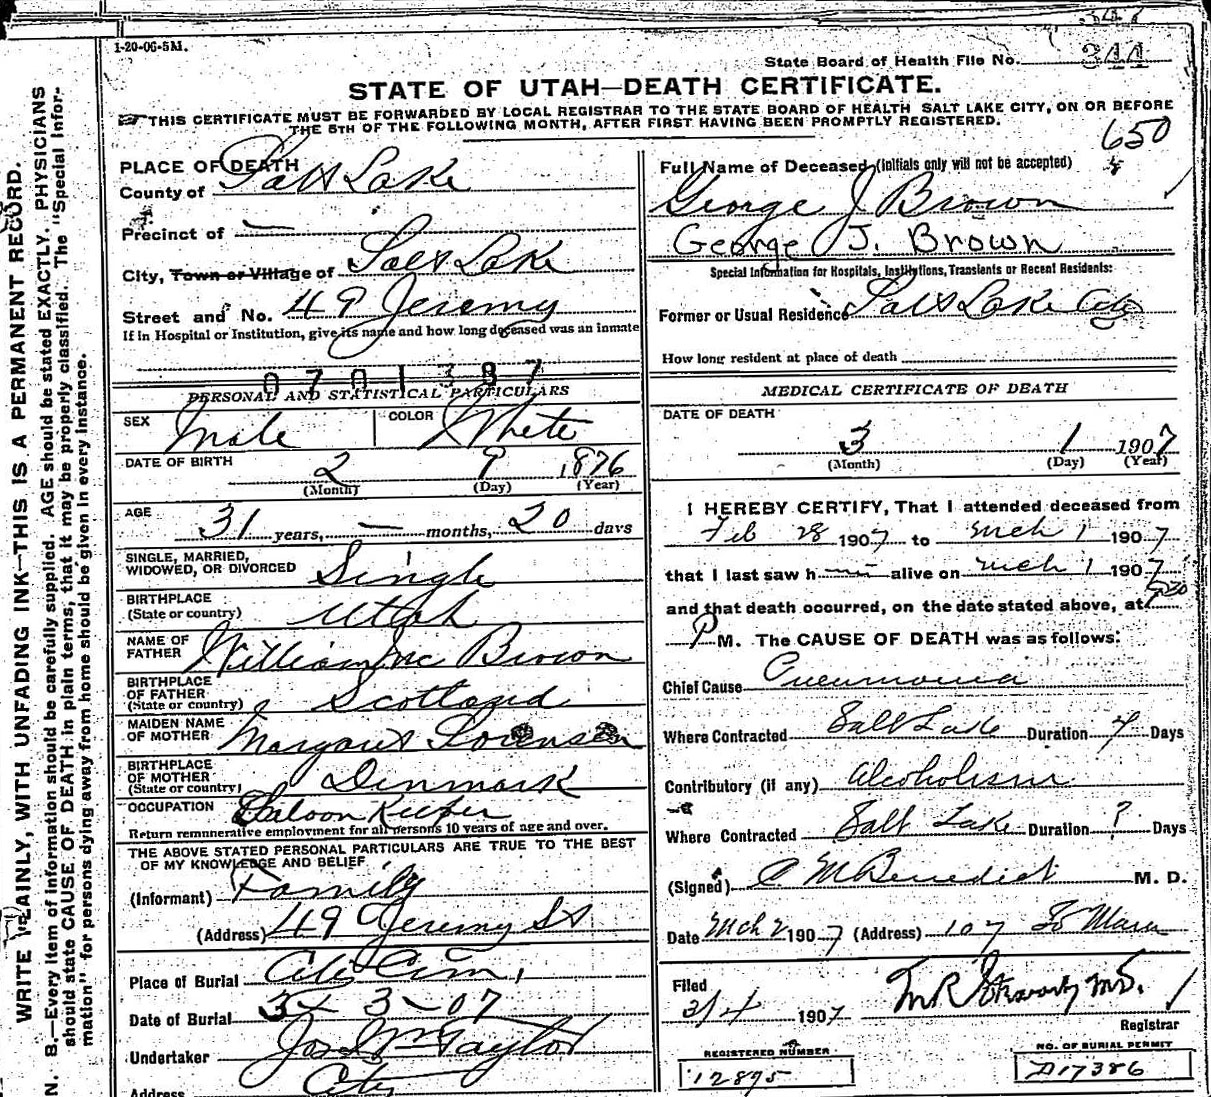 1-20-06-5M.
State Board of Health File No. 344
STATE OF UTAH—DEATH CERTIFICATE.
THIS CERTIFICATE MUST BE FORWARDED BY LOCAL REGISTRAR TO THE STATE BOARD OF HEALTH SALT LAKE CITY, ON OR BEFORE
THE 5TH OF THE FOLLOWING MONTH, AFTER FIRST HAVING BEEN PROMPTLY REGISTERED.
650
PLACE OF DEATH
County of Salt Lake
Precinct of —
City, Town or Village of Salt Lake
Street and No. 49 Jeremy
If in Hospital or Institution, give its name and how long deceased was an inmate
0701387
PERSONAL AND STATISTICAL PARTICULARS
SEX Male COLOR White
DATE OF BIRTH 2 9 1876
(Month) (Day) (Year)
AGE 31 years, — months, 20 days
SINGLE, MARRIED,
WIDOWED, OR DIVORCED Single
BIRTHPLACE
(State or country) Utah
NAME OF
FATHER William Mc Brown
BIRTHPLACE
OF FATHER
(State or country) Scotland
MAIDEN NAME
OF MOTHER Margaret Sorensen
BIRTHPLACE
OF MOTHER
(State or country) Denmark
OCCUPATION Saloon Keeper
Return remunerative employment for all persons 10 years of age and over.
THE ABOVE STATED PERSONAL PARTICULARS ARE TRUE TO THE BEST
OF MY KNOWLEDGE AND BELIEF.
(Informant) Family
(Address) 49 Jeremy St
Place of Burial City Cem,
Date of Burial 3 - 3 - 07
Undertaker Jos Wm Taylor
Address City
Full Name of Deceased (initials only will not be accepted)
George J Brown
George J. Brown
Special Information for Hospitals, Institutions, Transients or Recent Residents:
Former or Usual Residence Salt Lake City
How long resident at place of death
MEDICAL CERTIFICATE OF DEATH
DATE OF DEATH
3 1 1907
(Month) (Day) (Year)
I HEREBY CERTIFY, That I attended deceased from
Feb 28 1907 to Mch 1 1907
that I last saw h — alive on Mch 1 1907
and that death occurred, on the date stated above, at
P M. The CAUSE OF DEATH was as follows:
Chief Cause Pneumonia
Where Contracted Salt Lake Duration 4 Days
Contributory (if any) Alcoholism
Where Contracted Salt Lake Duration ? Days
(Signed) C M Benedict M. D.
Date Mch 2 1907 (Address) 107 So Main
Filed
3/4 1907 M.D.
Registrar
REGISTERED NUMBER
12895
NO. OF BURIAL PERMIT
D17386
WRITE PLAINLY, WITH UNFADING INK—THIS IS A PERMANENT RECORD.
N. B.—Every item of Information should be carefully supplied. AGE should be stated EXACTLY. PHYSICIANS
should state CAUSE OF DEATH in plain terms, that it may be properly classified. The "Special Infor-
mation" for persons dying away from home should be given in every instance.